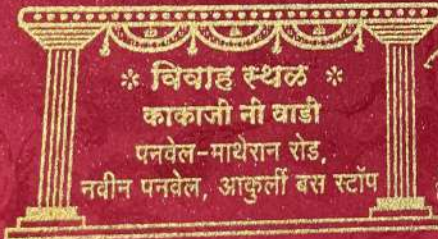 * विवाह स्थळ *
काकाजी नी वाडी
पनवेल-माथेरान रोड,
नवीन पनवेल, आकुर्ली बस स्टॉप